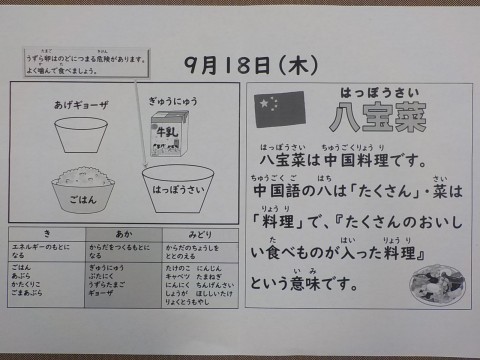 うずら卵はのどにつまる危険があります。
よく噛んで食べましょう。
9月18日(木)
あげギョーザ
ぎゅうにゅう
牛乳
ごはん
はっぽうさい
き
あか
みどり
エネルギーのもとに
なる
からだをつくるもとに
なる
からだのちょうしを
ととのえる
ごはん
あぶら
かたくりこ
ごまあぶら
ぎゅうにゅう
ぶたにく
うずらたまご
ギョーザ
たけのこ にんじん
キャベツ たまねぎ
にんにく ちんげんさい
しょうが ほししいたけ
りょくとうもやし
はっぽうさい
八宝菜
はっぽうさい ちゅうごくりょうり
八宝菜は中国料理です。
ちゅうごくご はち さい
中国語の八は「たくさん」・菜は
りょうり
「料理」で、『たくさんのおいし
た はい りょうり
い食べものが入った料理』
いみ
という意味です。